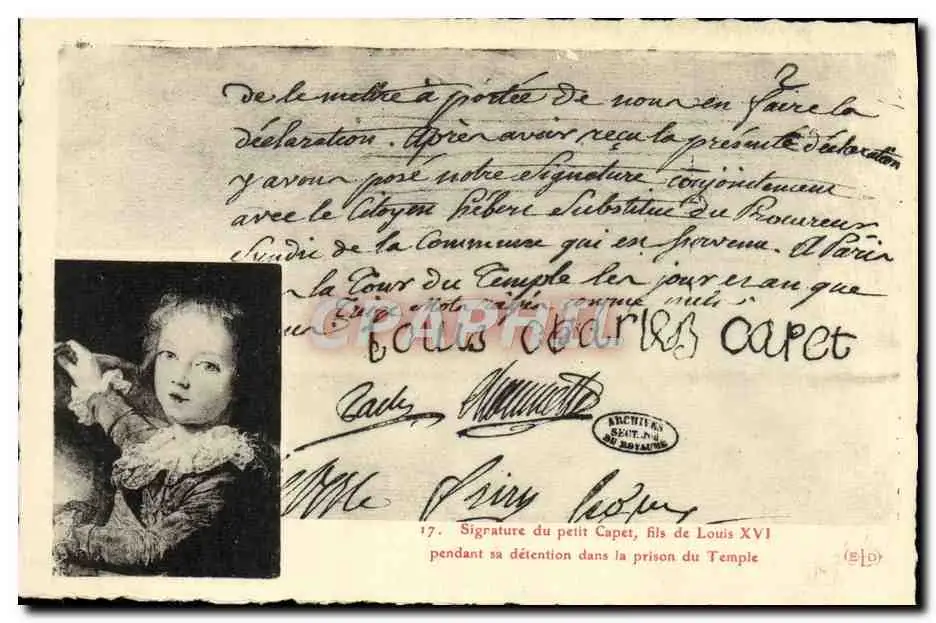 2
de le mettre à portée de nous en faire la
déclaration. Après avoir reçu la présente déclaration
y avons posé notre Signature conjointement
avec le Citoyen hébert Substitut du Procureur
Sindic de la Commune qui est survenu. A Paris
la Tour du Temple les jour et an que
Treize mots rayés comme nuls
Louis Charles Capet
CPAPHIL
Pache Chaumette
ARCHIVES
SECT. JUD
DU ROYAUME
17. Signature du petit Capet, fils de Louis XVI
pendant sa détention dans la prison du Temple
ELD